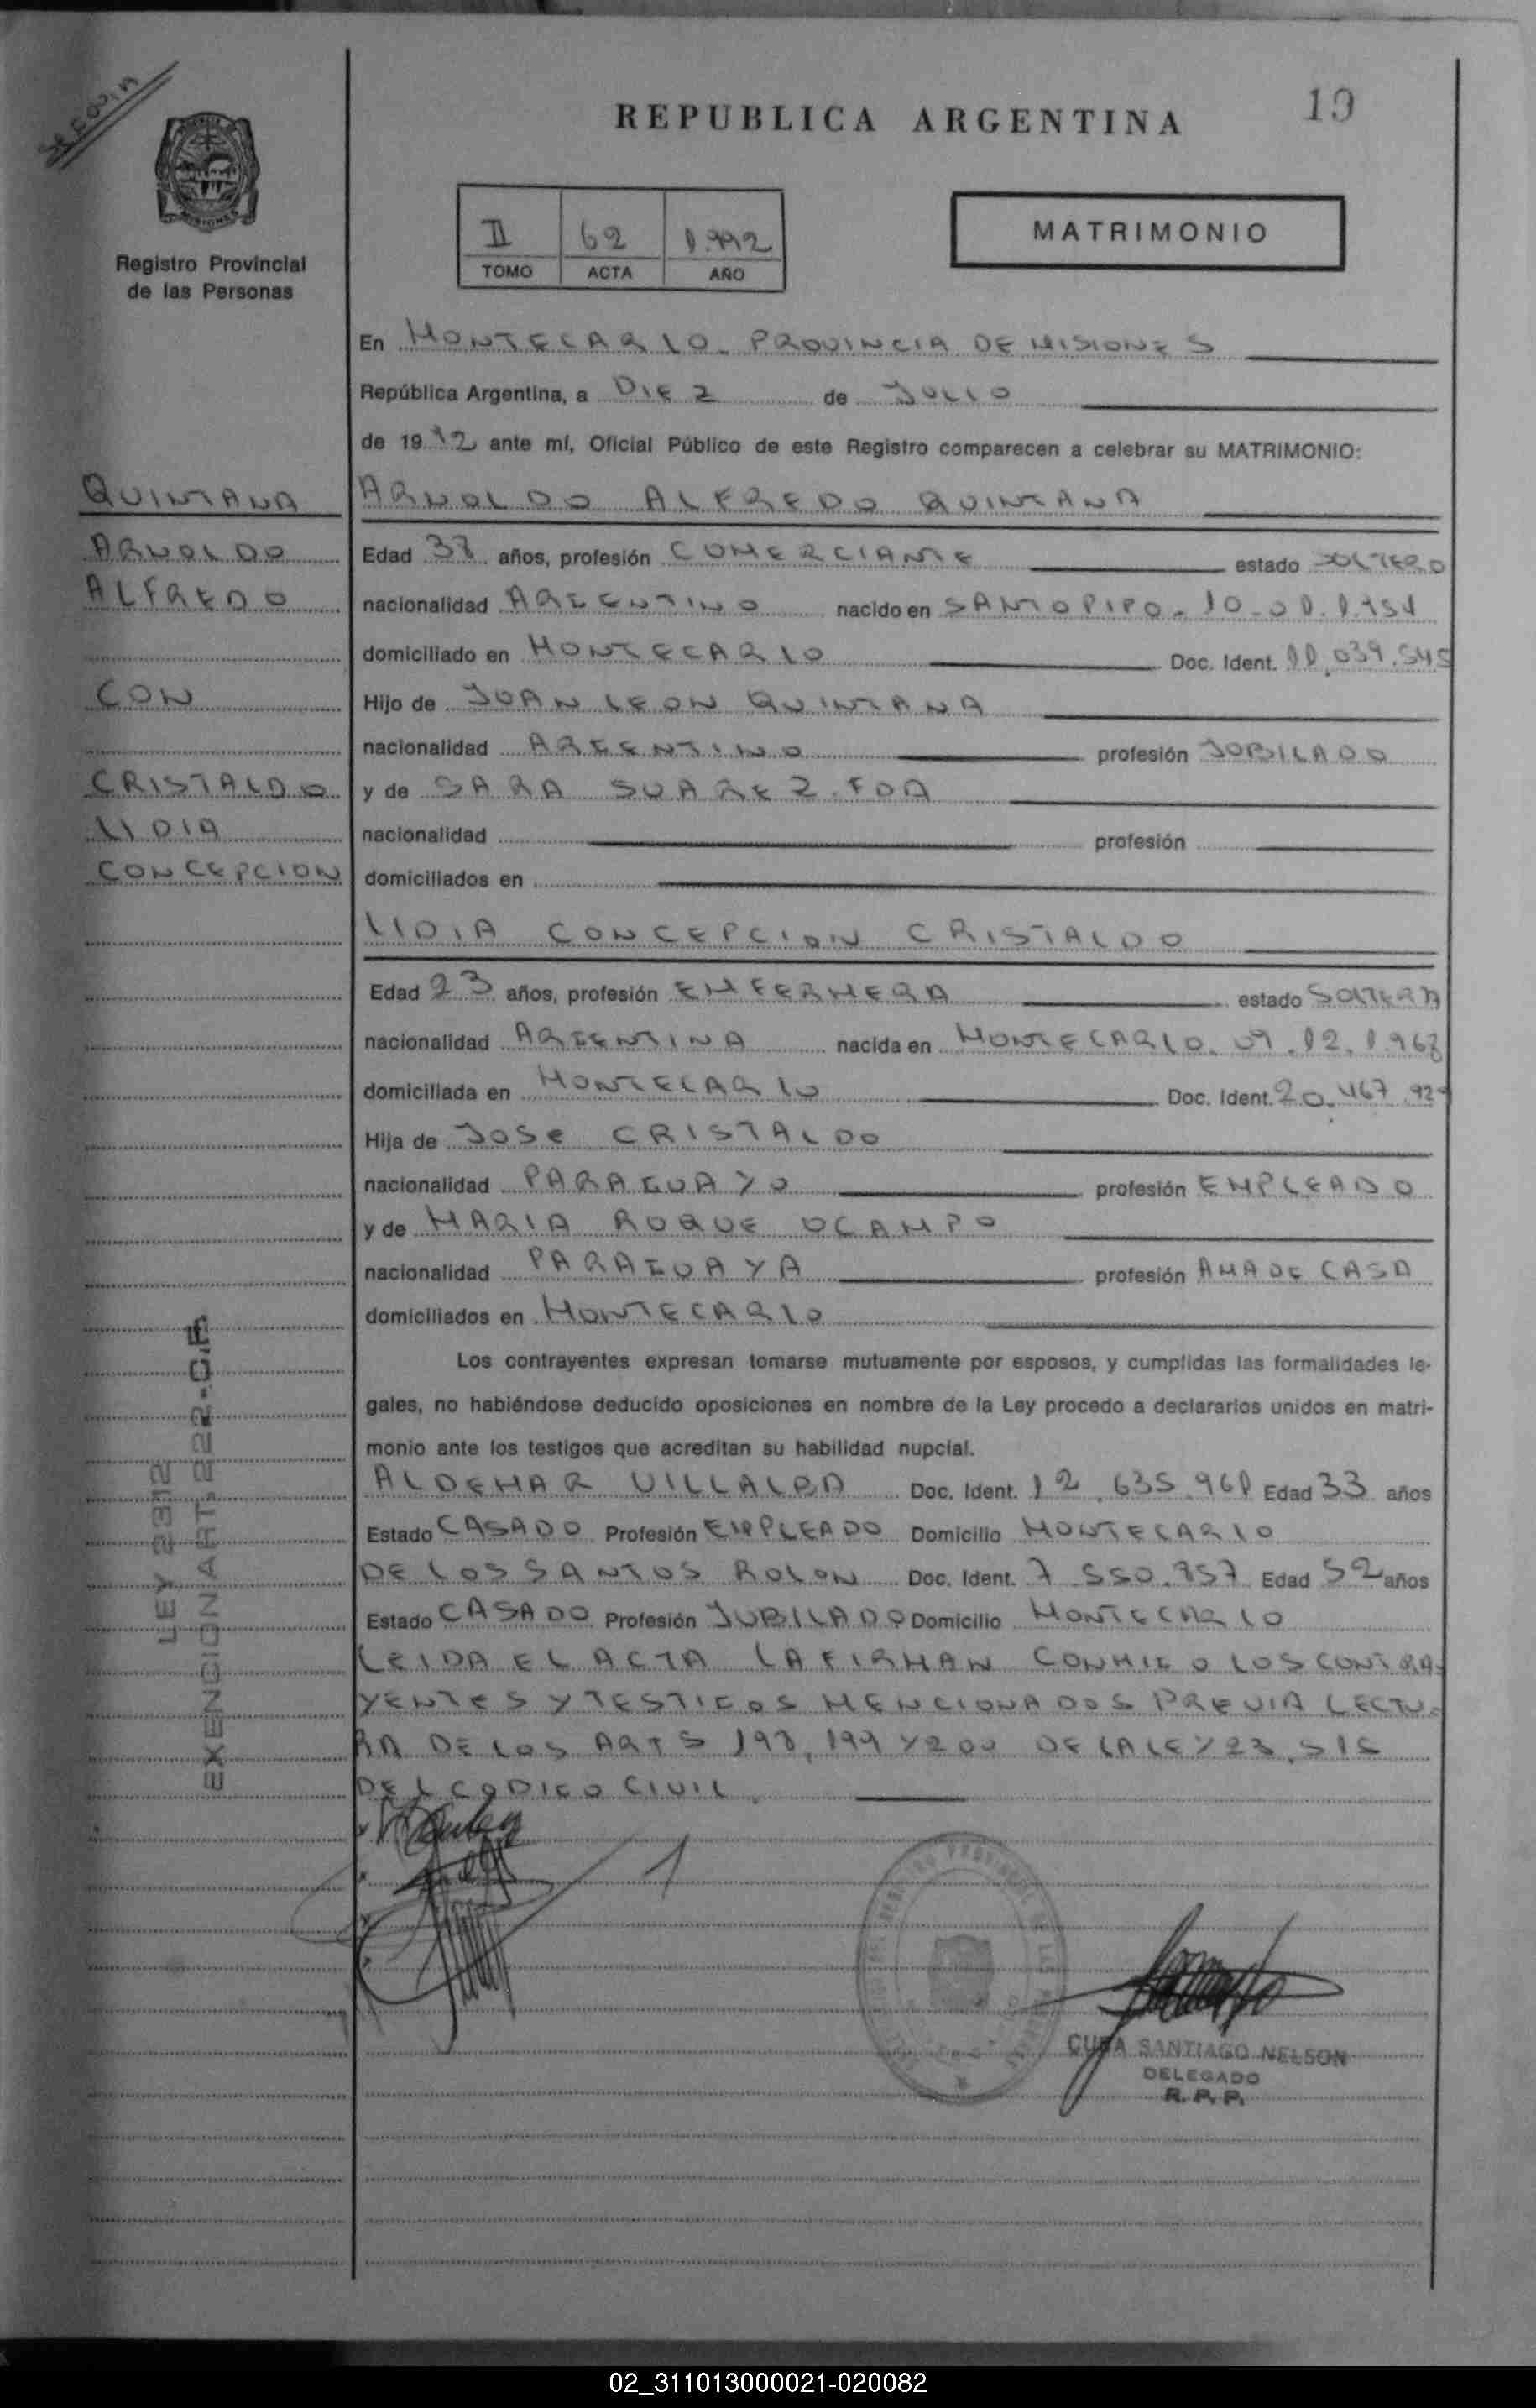 SEGOVIA
REPUBLICA ARGENTINA
19
MISIONES
Registro Provincial
de las Personas
II 62 1.992
TOMO ACTA AÑO
MATRIMONIO
En MONTECARLO. PROVINCIA DE MISIONES
República Argentina, a DIEZ de JULIO
de 1992 ante mí, Oficial Público de este Registro comparecen a celebrar su MATRIMONIO:
QUINTANA
ARNOLDO
ALFREDO
CON
CRISTALDO
LIDIA
CONCEPCION
ARNOLDO ALFREDO QUINTANA
Edad 38 años, profesión COMERCIANTE estado SOLTERO
nacionalidad ARGENTINO nacido en SANTO PIPO. 10-01.1.954
domiciliado en MONTECARLO Doc. Ident. 11.039.545
Hijo de JUAN LEON QUINTANA
nacionalidad ARGENTINO profesión JUBILADO
y de SARA SUAREZ. FDA
nacionalidad profesión
domiciliados en
LIDIA CONCEPCION CRISTALDO
Edad 23 años, profesión ENFERMERA estado SOLTERA
nacionalidad ARGENTINA nacida en MONTECARLO. 09.12.1.968
domiciliada en MONTECARLO Doc. Ident. 20.467.929
Hija de JOSE CRISTALDO
nacionalidad PARAGUAYO profesión EMPLEADO
y de MARIA ROQUE OCAMPO
nacionalidad PARAGUAYA profesión AMA DE CASA
domiciliados en MONTECARLO
Los contrayentes expresan tomarse mutuamente por esposos, y cumplidas las formalidades le-
gales, no habiéndose deducido oposiciones en nombre de la Ley procedo a declararlos unidos en matri-
monio ante los testigos que acreditan su habilidad nupcial.
ALDEMAR VILLALBA Doc. Ident. 12.635.961 Edad 33 años
Estado CASADO Profesión EMPLEADO Domicilio MONTECARLO
DE LOS SANTOS ROLON Doc. Ident. 7.550.757 Edad 52 años
Estado CASADO Profesión JUBILADO Domicilio MONTECARLO
LEIDA EL ACTA LA FIRMAN CONMIGO LOS CONTRA-
YENTES Y TESTIGOS MENCIONADOS PREVIA LECTU-
RA DE LOS ARTS 198, 199 Y 200 DE LA LEY 23.515
DEL CODIGO CIVIL.
LEY 2312
EXENCION ART. 22-C.F.
CUBA SANTIAGO NELSON
DELEGADO
R.P.P.
02_311013000021-020082